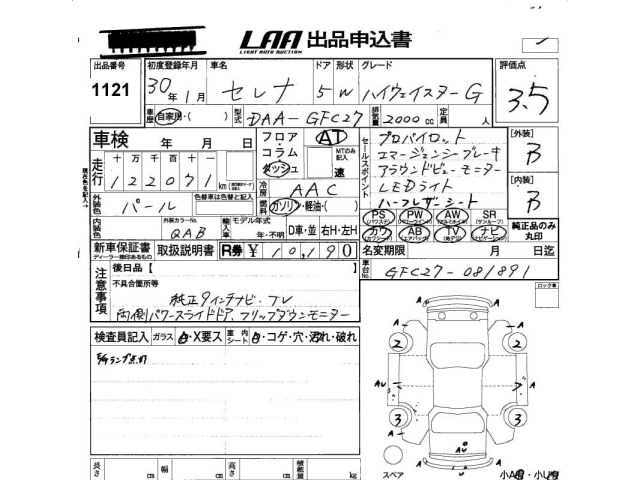 LAA 出品申込書
LIGHT AUTO AUCTION
出品番号 初度登録年月 車名 ドア 形状 グレード 評価点
1121 30年 1月 セレナ 5 W ハイウェイスターG 3.5
車歴 自家用・( ) 型式 DAA-GFC27 排気量 2000cc 定員 人
車検 年 月 日 フロア コラム ダッシュ AT MTのみ記入 速
セールスポイント プロパイロット
エマージェンシーブレーキ
アラウンドビューモニター
LEDライト
ハーフレザーシート
[外装] B
[内装] B
走行 十 万 千 百 十 一
122071 km
冷房 AAC
燃料 ガソリン・軽油・( )
外装色 パール 色替車は色替と記入
内装色 外装カラーNo. QAB 輸入車 モデル年式 年・不明 D車・並 右H・左H
PS PW AW SR
カワ AB TV ナビ
純正品のみ丸印
新車保証書 取扱説明書 R券 ¥10,190 名変期限 月 日迄
ディーラー捺印あるもの
車台No. GFC27-081891
注意事項 後日品【 】
不具合箇所等
純正9インチナビ・TV
両側パワースライドドア、フリップダウンモニター
ロック車
検査員記入 ガラス A・X要ス 室内シート A・コゲ・穴・汚れ・破れ
ランプ点灯
A A
2 2
AU A
3 3
A AU A
A
スペア
長さ cm 幅 cm 高さ cm 積載量 kg